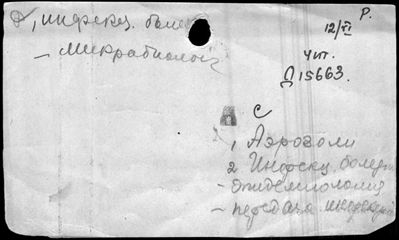 Р.
12/VI
, инфекц. боле
– микробиолог
Чит.
Д15663.
С
1 Аэрозоли
2. Инфекц. болезн
– эпидемиология
– передача инфекции